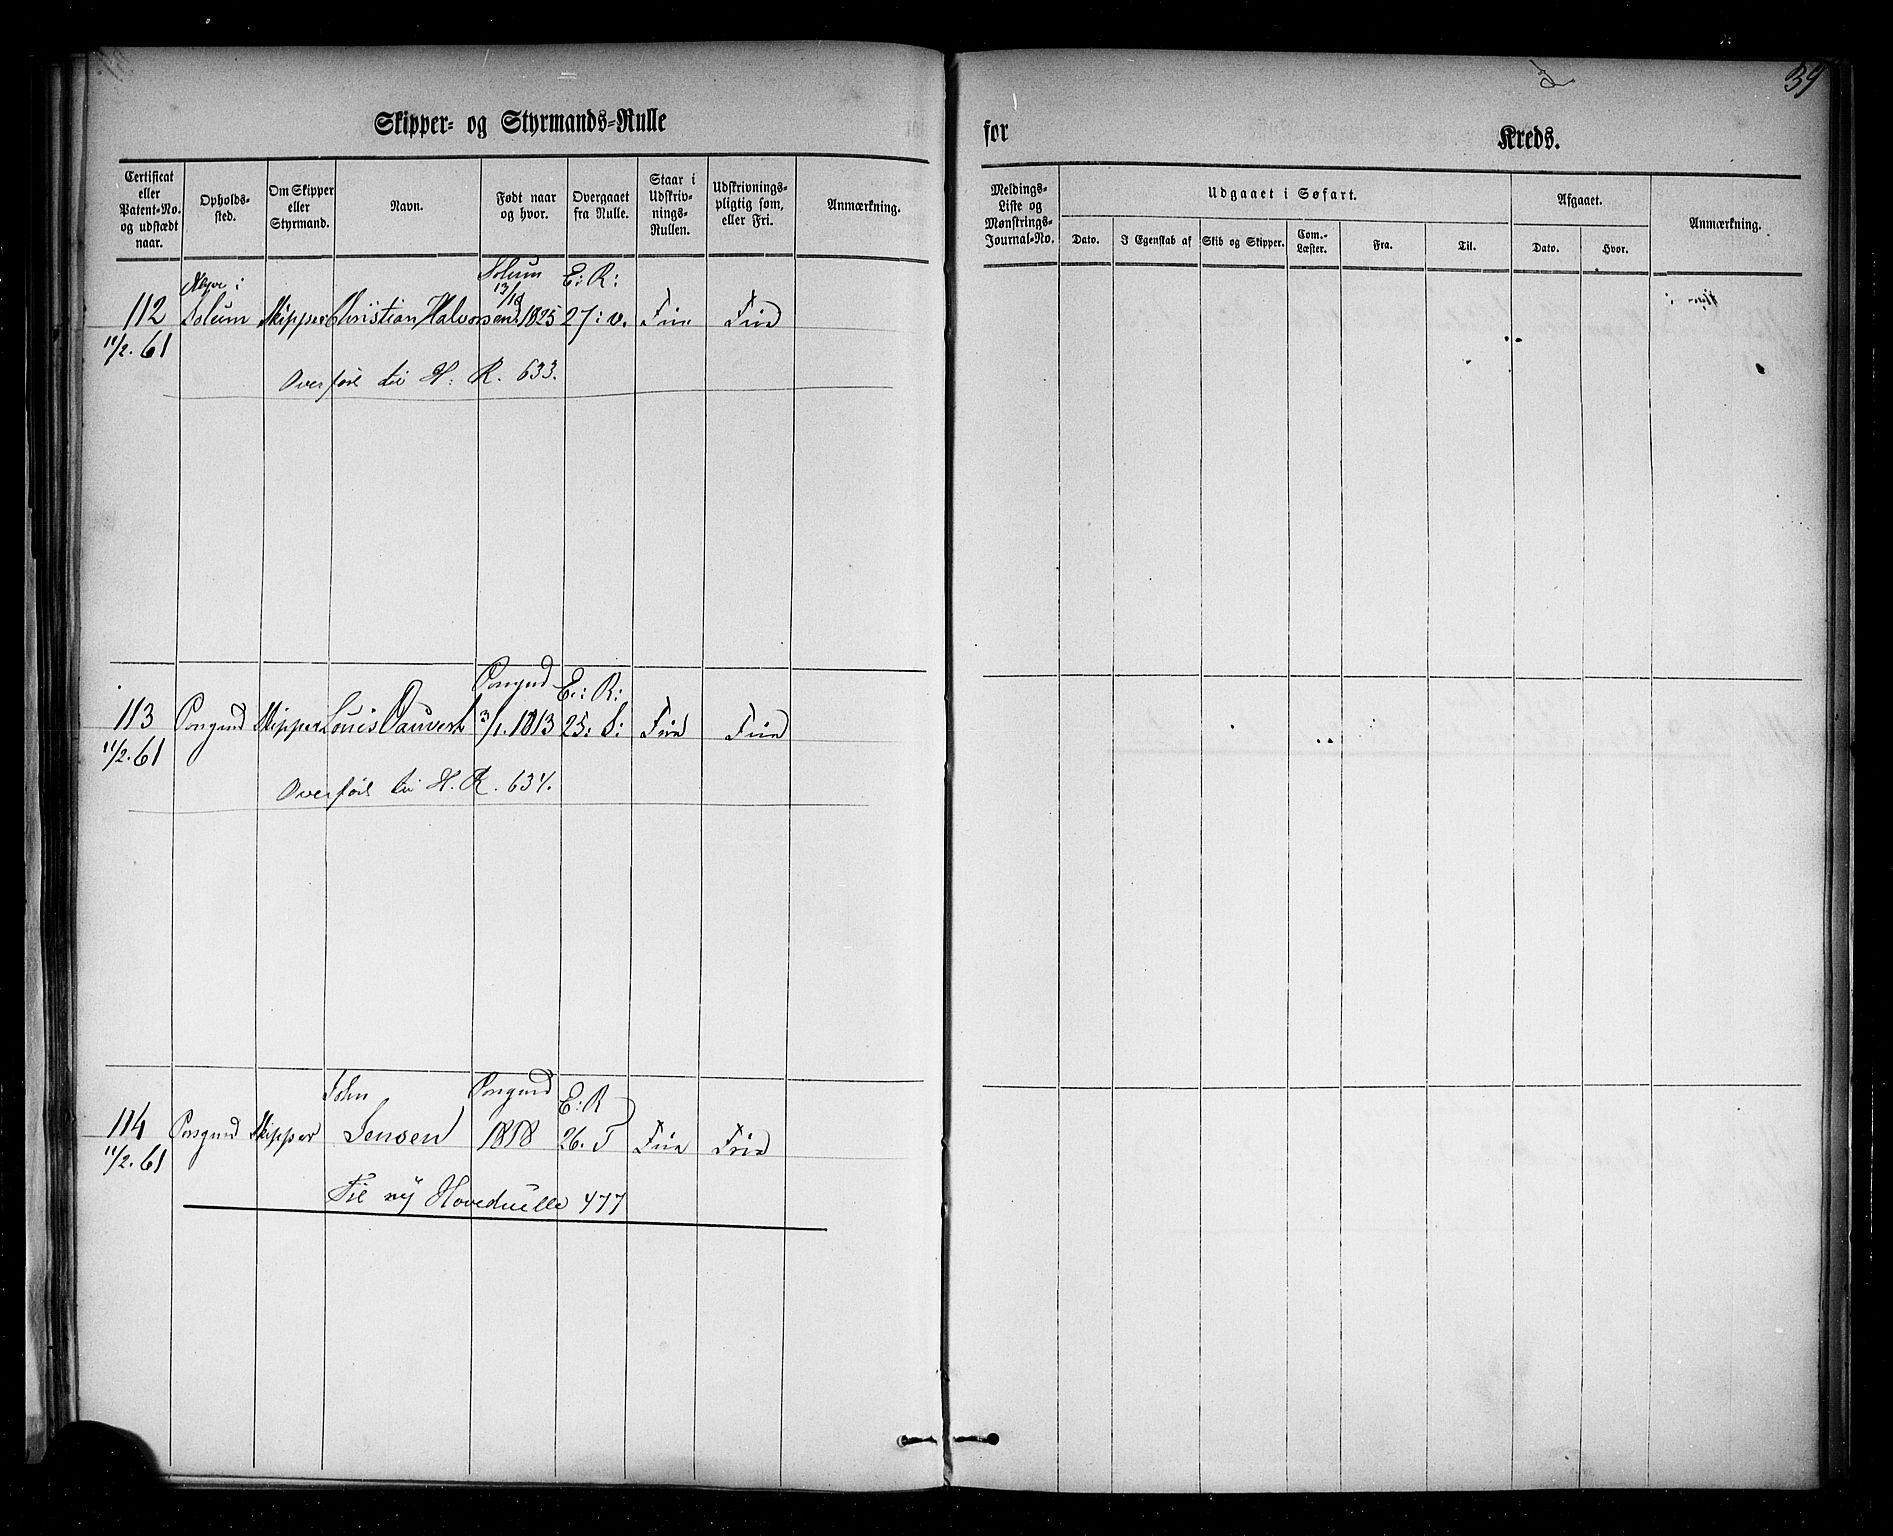 39
Skipper- og Styrmands-Rulle
for Kreds.
Certificat eller Patent-No. og udstædt naar.
Opholds-sted.
Om Skipper eller Styrmand.
Navn.
Født naar og hvor.
Overgaaet fra Rulle.
Staar i Udskriv-nings-Rullen.
Udskrivnings-pligtig som, eller Fri.
Anmærkning.
Meldings-Liste og Mønstrings-Journal-No.
Udgaaet i Søfart.
Dato.
I Egenskab af
Skib og Skipper.
Com.-Læster.
Fra.
Til.
Afgaaet.
Dato.
Hvor.
Anmærkning.
Solum E: R:
112 Solum Skipper Christian Halvorsen 13/10 1825 27: v. Frie Frie
11/2. 61
Overført til H: R. 633.
Porsgrund E: R:
113 Porsgrund Skipper Louis Dauverk 3/1. 1813 25: S: Frie Frie
11/2. 61
Overført til H. R. 634.
John Porsgrund E: R
114 Porsgrund Skipper Jensen 1818 26. T Frie Frie
11/2. 61
Til ny Hovedrulle 477